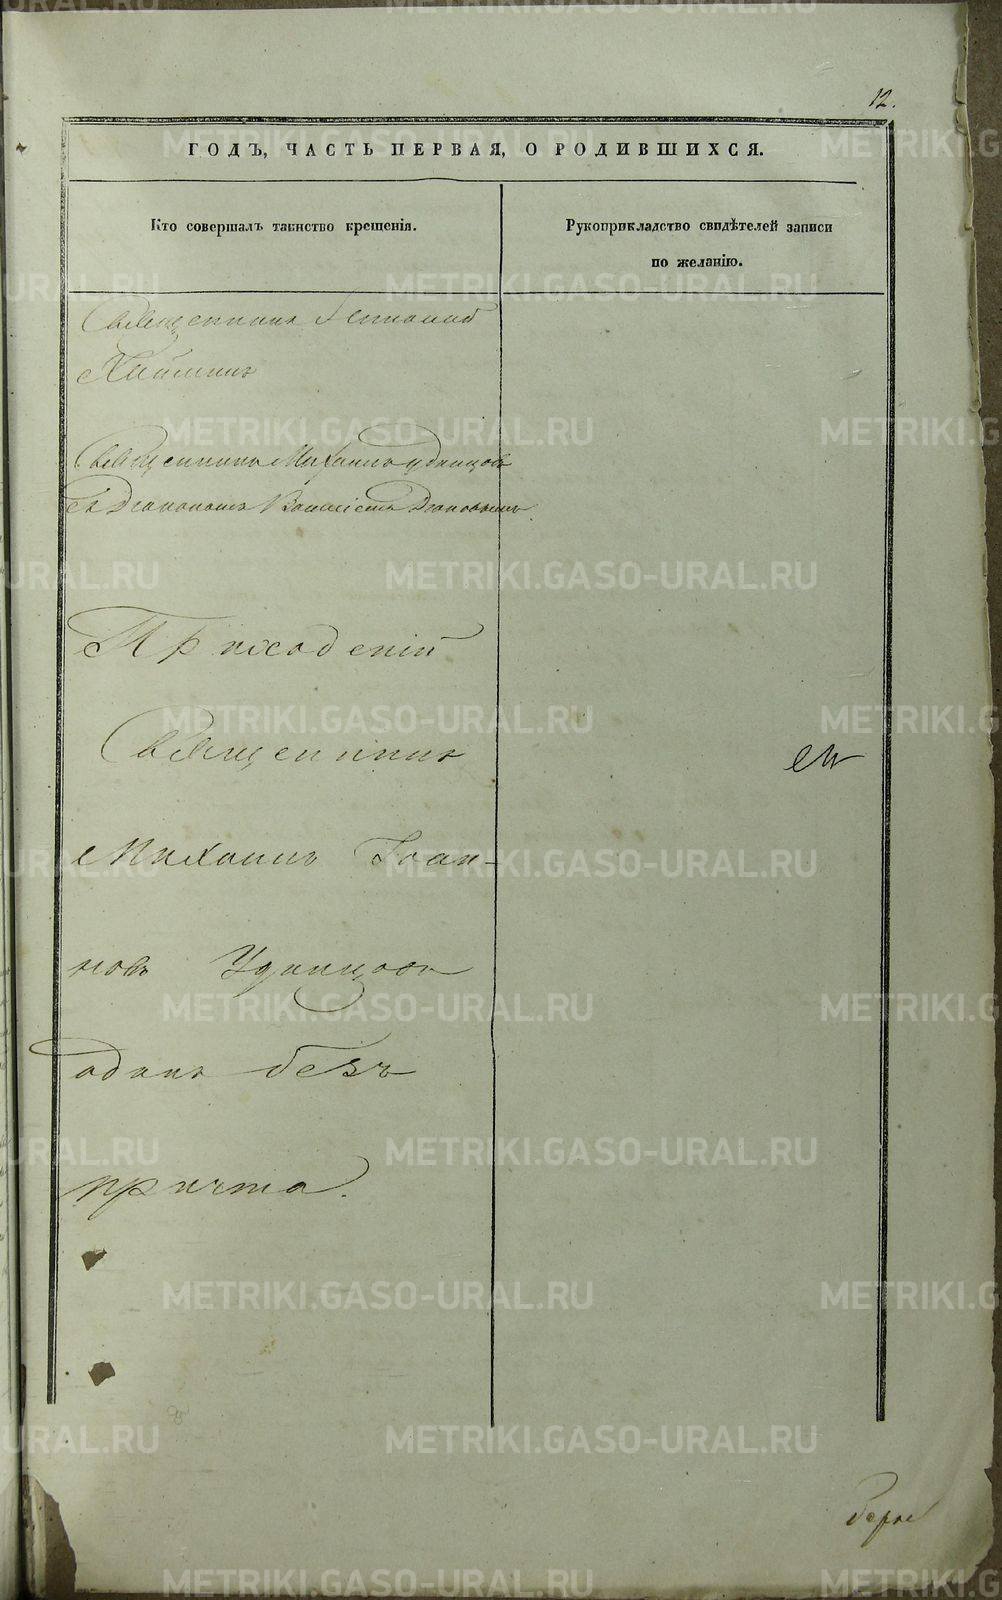 12.
ГОДЪ, ЧАСТЬ ПЕРВАЯ, О РОДИВШИХСЯ.
Кто совершалъ таинство крещенія.
Рукоприкладство свидѣтелей записи
по желанію.
Священникъ
Священникъ Михаилъ Удинцовъ
съ Діакономъ
Приходскій
Священникъ
Михаилъ Іоан-
новъ Удинцовъ
одинъ безъ
причта.
METRIKI.GASO-URAL.RU